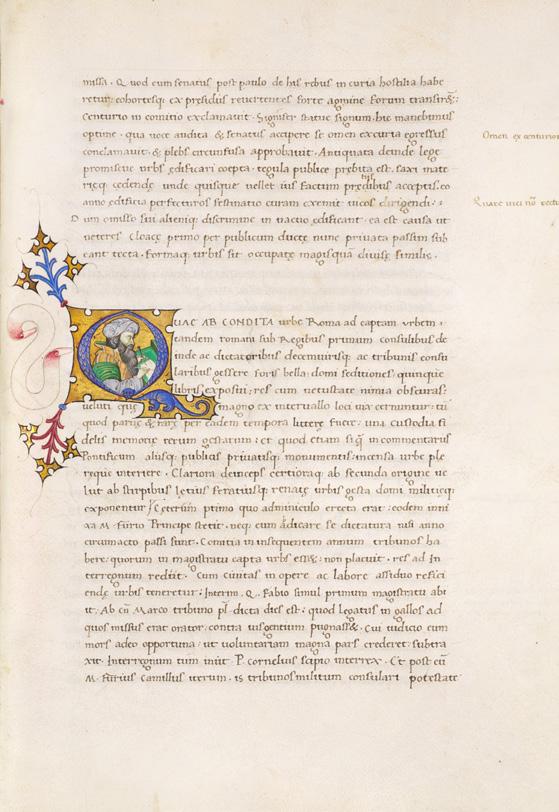 missa. Quod cum senatus post paulo de his rebus in curia hostilia habe
retur: cohortesq; ex presidiis reuertentes forte agmine forum transirēt:
Centurio in comitio exclamauit. Signifer statue signum. hic manebimus
optime. qua uoce audita & senatus accipere se omen ex curia egressus
conclamauit. & plebs circunfusa approbauit. Antiquata deinde lege
promiscue urbs ędificari coepta. tegula publice prębita est. saxi mate
rięq; cędendę unde quisque uellet ius factum prędibus acceptis. eo
anno ędificia perfecturos festinatio curam exemit uicos dirigendi.
Dum omisso sui alieniq; discrimine in uacuo ędificant. ea est causa ut
ueteres cloacę primo per publicum ductę nunc priuata passim sub
eant tecta. Formaq; urbis sit occupatę magisquā diuisę similis.
Omen ex centurion
Quare uici nō recti
QUAE AB CONDITA urbe Roma ad captam urbem
eandem romani sub Regibus primum consulibus de
inde ac dictatoribus decemuirisq; ac tribunis consu
laribus gessere foris bella: domi seditiones: quinque
libris exposui: res cum uetustate nimia obscuras:
ueluti quę magno ex interuallo loci uix cernuntur: tū
quod paruę & rarę per eadem tempora litterę fuere: una custodia fi
delis memorię rerum gestarum: et quod etiam si q̄ in commentariis
Pontificum aliisq; publicis priuatisq; monumentis: incensa urbe ple
ręque interiere. Clariora deinceps certioraq; ab secunda origine ue
lut ab stirpibus lętius feratiusq; renatę urbis gesta domi militięq;
exponentur. Ceterum primo quo adminiculo erecta erat: eodem inni
xa M. furio Principe stetit. neq; eum abdicare se dictatura nisi anno
circumacto passi sunt. Comitia in insequentem annum tribunos ha
bere: quorum in magistratu capta urbs esset: non placuit. res ad In
terregnum rediit. Cum ciuitas in opere ac labore assiduo refici
endę urbis teneretur: Interim .Q. Fabio simul primum magistratu abi
it. Ab cn̄ Marco tribuno pl̄ dicta dies est: quod legatus in gallos ad
quos missus erat orator: contra ius gentium pugnasset. Cui iudicio eum
mors adeo opportuna: ut uoluntariam magna pars crederet: subtra
xit. Interregnum tum iniit P. cornelius scipio interrex. Et post eū
M. furius Camillus iterum. is tribunos militum consulari potestate